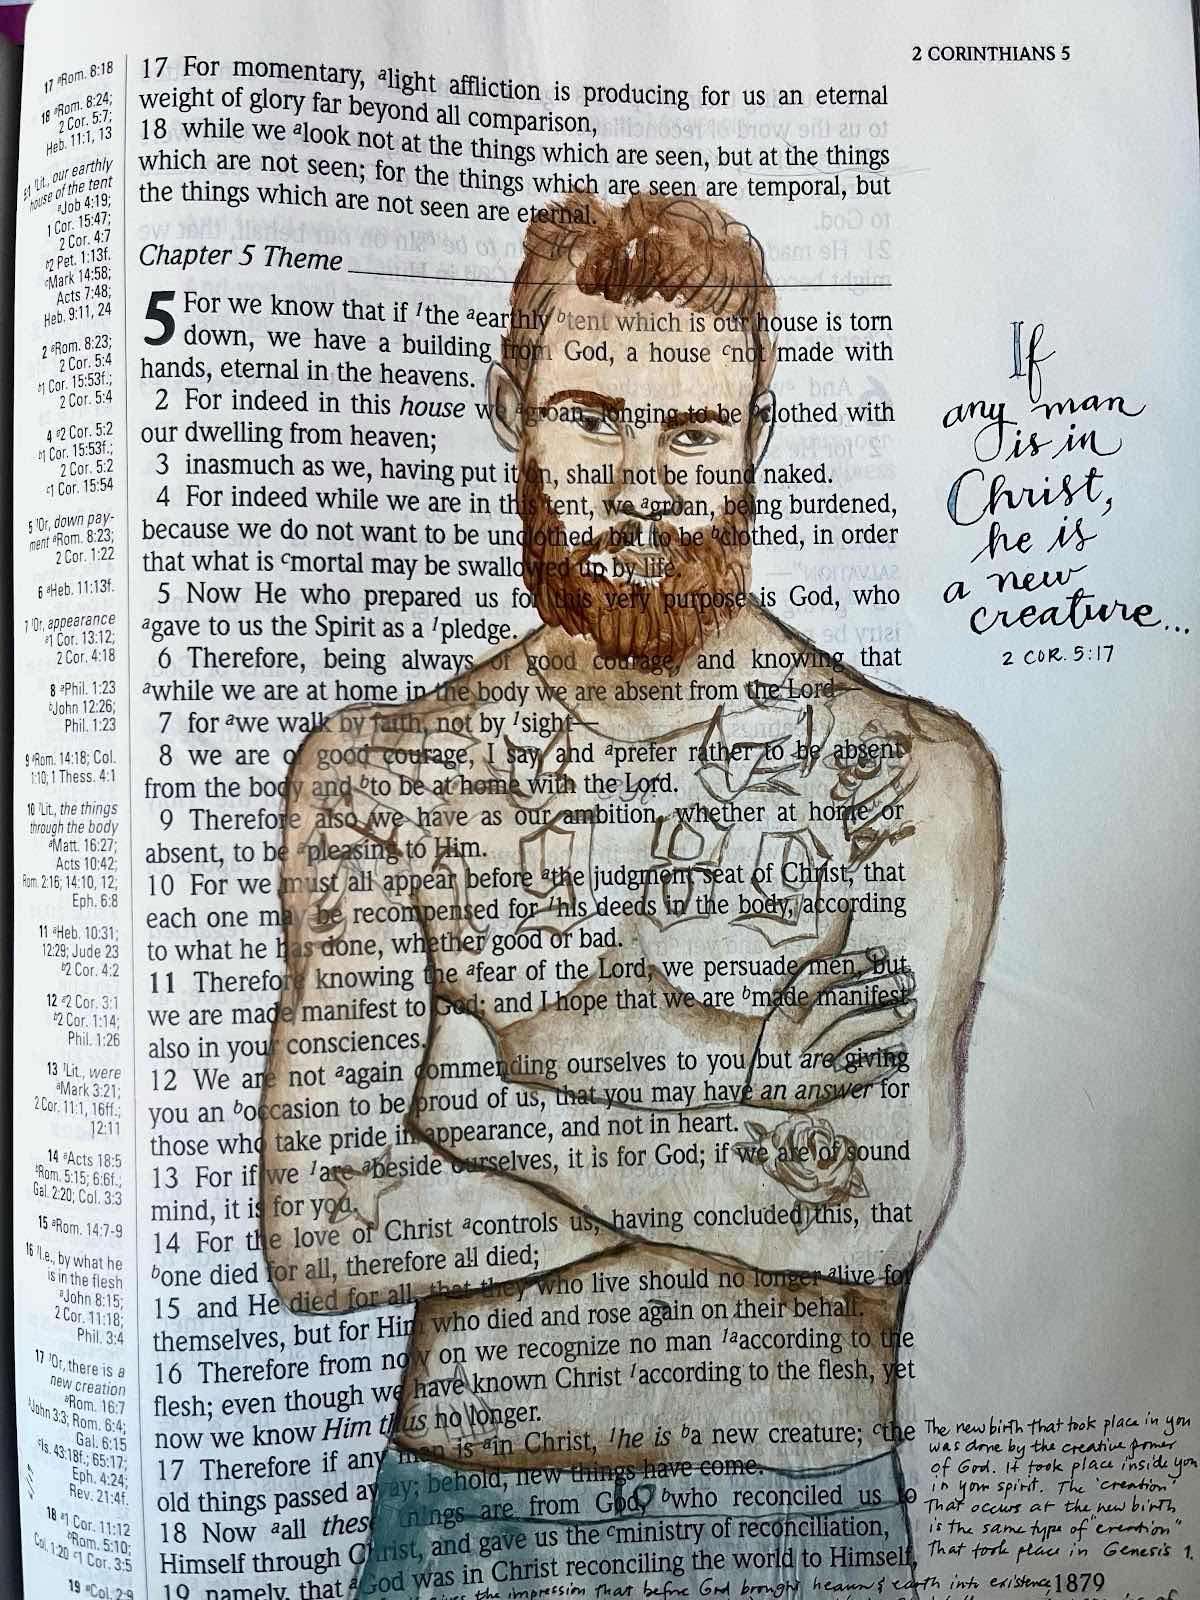 2 CORINTHIANS 5
17 ªRom. 8:18
18 ªRom. 8:24;
2 Cor. 5:7;
Heb. 11:1, 13
5:1 ˡLit., our earthly
house of the tent
ªJob 4:19;
1 Cor. 15:47;
2 Cor. 4:7
ᵇ2 Pet. 1:13f.
ᶜMark 14:58;
Acts 7:48;
Heb. 9:11, 24
2 ªRom. 8:23;
2 Cor. 5:4
ᵇ1 Cor. 15:53f.;
2 Cor. 5:4
4 ª2 Cor. 5:2
ᵇ1 Cor. 15:53f.;
2 Cor. 5:2
ᶜ1 Cor. 15:54
5 ˡOr, down pay-
ment ªRom. 8:23;
2 Cor. 1:22
6 ªHeb. 11:13f.
7 ˡOr, appearance
ª1 Cor. 13:12;
2 Cor. 4:18
8 ªPhil. 1:23
ᵇJohn 12:26;
Phil. 1:23
9 ªRom. 14:18; Col.
1:10; 1 Thess. 4:1
10 ˡLit., the things
through the body
ªMatt. 16:27;
Acts 10:42;
Rom. 2:16; 14:10, 12;
Eph. 6:8
11 ªHeb. 10:31;
12:29; Jude 23
ᵇ2 Cor. 4:2
12 ª2 Cor. 3:1
ᵇ2 Cor. 1:14;
Phil. 1:26
13 ˡLit., were
ªMark 3:21;
2 Cor. 11:1, 16ff.;
12:11
14 ªActs 18:5
ᵇRom. 5:15; 6:6f.;
Gal. 2:20; Col. 3:3
15 ªRom. 14:7-9
16 ˡI.e., by what he
is in the flesh
ªJohn 8:15;
2 Cor. 11:18;
Phil. 3:4
17 ˡOr, there is a
new creation
ªRom. 16:7
ᵇJohn 3:3; Rom. 6:4;
Gal. 6:15
ᶜIs. 43:18f.; 65:17;
Eph. 4:24;
Rev. 21:4f.
18 ª1 Cor. 11:12
ᵇRom. 5:10;
Col. 1:20 ᶜ1 Cor. 3:5
19 ªCol. 2:9
17 For momentary, ªlight affliction is producing for us an eternal
weight of glory far beyond all comparison,
18 while we ªlook not at the things which are seen, but at the things
which are not seen; for the things which are seen are temporal, but
the things which are not seen are eternal.
Chapter 5 Theme
5 For we know that if ˡthe ªearthly ᵇtent which is our house is torn
down, we have a building from God, a house ᶜnot made with
hands, eternal in the heavens.
2 For indeed in this house we ªgroan, longing to be ᵇclothed with
our dwelling from heaven;
3 inasmuch as we, having put it on, shall not be found naked.
4 For indeed while we are in this tent, we ªgroan, being burdened,
because we do not want to be unclothed, but to be ᵇclothed, in order
that what is ᶜmortal may be swallowed up by life.
5 Now He who prepared us for this very purpose is God, who
ªgave to us the Spirit as a ˡpledge.
6 Therefore, being always of good courage, and knowing that
ªwhile we are at home in the body we are absent from the Lord—
7 for ªwe walk by faith, not by ˡsight—
8 we are of good courage, I say, and ªprefer rather to be absent
from the body and ᵇto be at home with the Lord.
9 Therefore also we have as our ambition, whether at home or
absent, to be ªpleasing to Him.
10 For we must all appear before ªthe judgment seat of Christ, that
each one may be recompensed for ˡhis deeds in the body, according
to what he has done, whether good or bad.
11 Therefore knowing the ªfear of the Lord, we persuade men, but
we are made manifest to God; and I hope that we are ᵇmade manifest
also in your consciences.
12 We are not ªagain commending ourselves to you but are giving
you an ᵇoccasion to be proud of us, that you may have an answer for
those who take pride in appearance, and not in heart.
13 For if we ˡare ªbeside ourselves, it is for God; if we are of sound
mind, it is for you.
14 For the love of Christ ªcontrols us, having concluded this, that
ᵇone died for all, therefore all died;
15 and He died for all, that they who live should no longer ªlive for
themselves, but for Him who died and rose again on their behalf.
16 Therefore from now on we recognize no man ˡªaccording to the
flesh; even though we have known Christ ˡaccording to the flesh, yet
now we know Him thus no longer.
17 Therefore if any man is ªin Christ, ˡhe is ᵇa new creature; ᶜthe
old things passed away; behold, new things have come.
18 Now ªall these things are from God, ᵇwho reconciled us to
Himself through Christ, and gave us the ᶜministry of reconciliation,
19 namely, that ªGod was in Christ reconciling the world to Himself,
If
any man
is in
Christ,
he is
a new
creature...
2 COR. 5:17
The new birth that took place in you
was done by the creative power
of God. It took place inside you
in your spirit. The "creation"
That occurs at the new birth
is the same type of "creation"
That took place in Genesis 1.
the impression that before God brought heaven & earth into existence,
1879